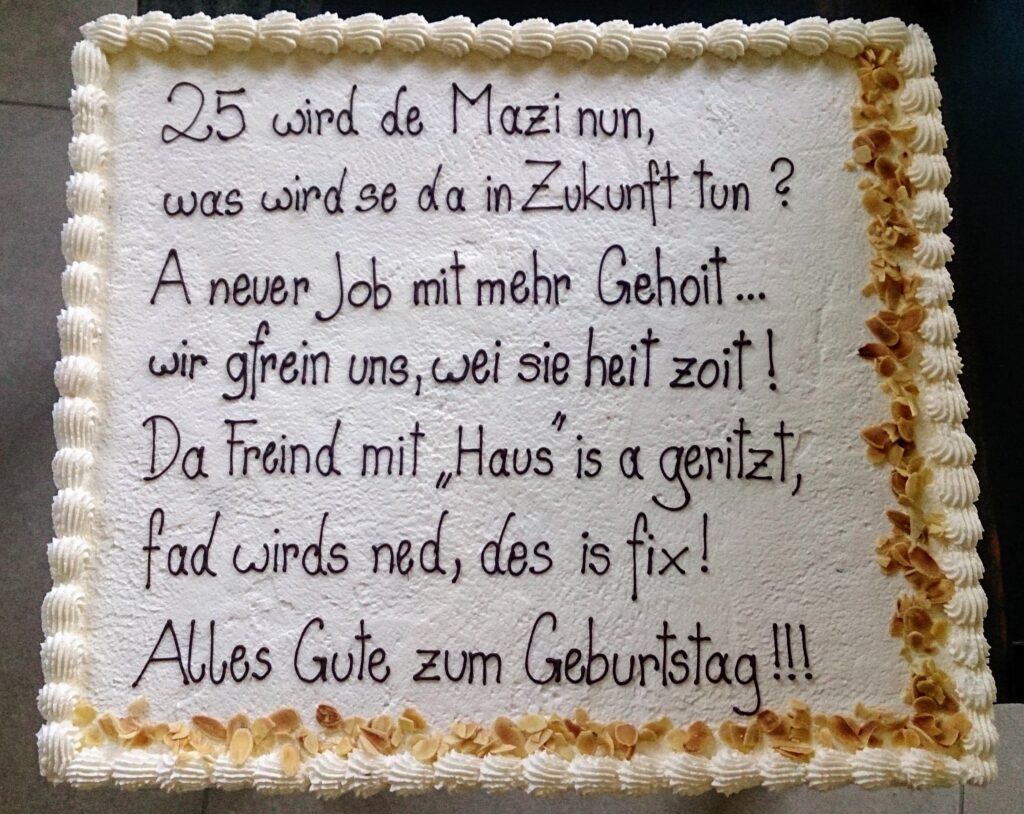 25 wird de Mazi nun,
was wird se da in Zukunft tun ?
A neuer Job mit mehr Gehoit...
wir gfrein uns, wei sie heit zoit !
Da Freind mit „Haus" is a geritzt,
fad wirds ned, des is fix !
Alles Gute zum Geburtstag !!!